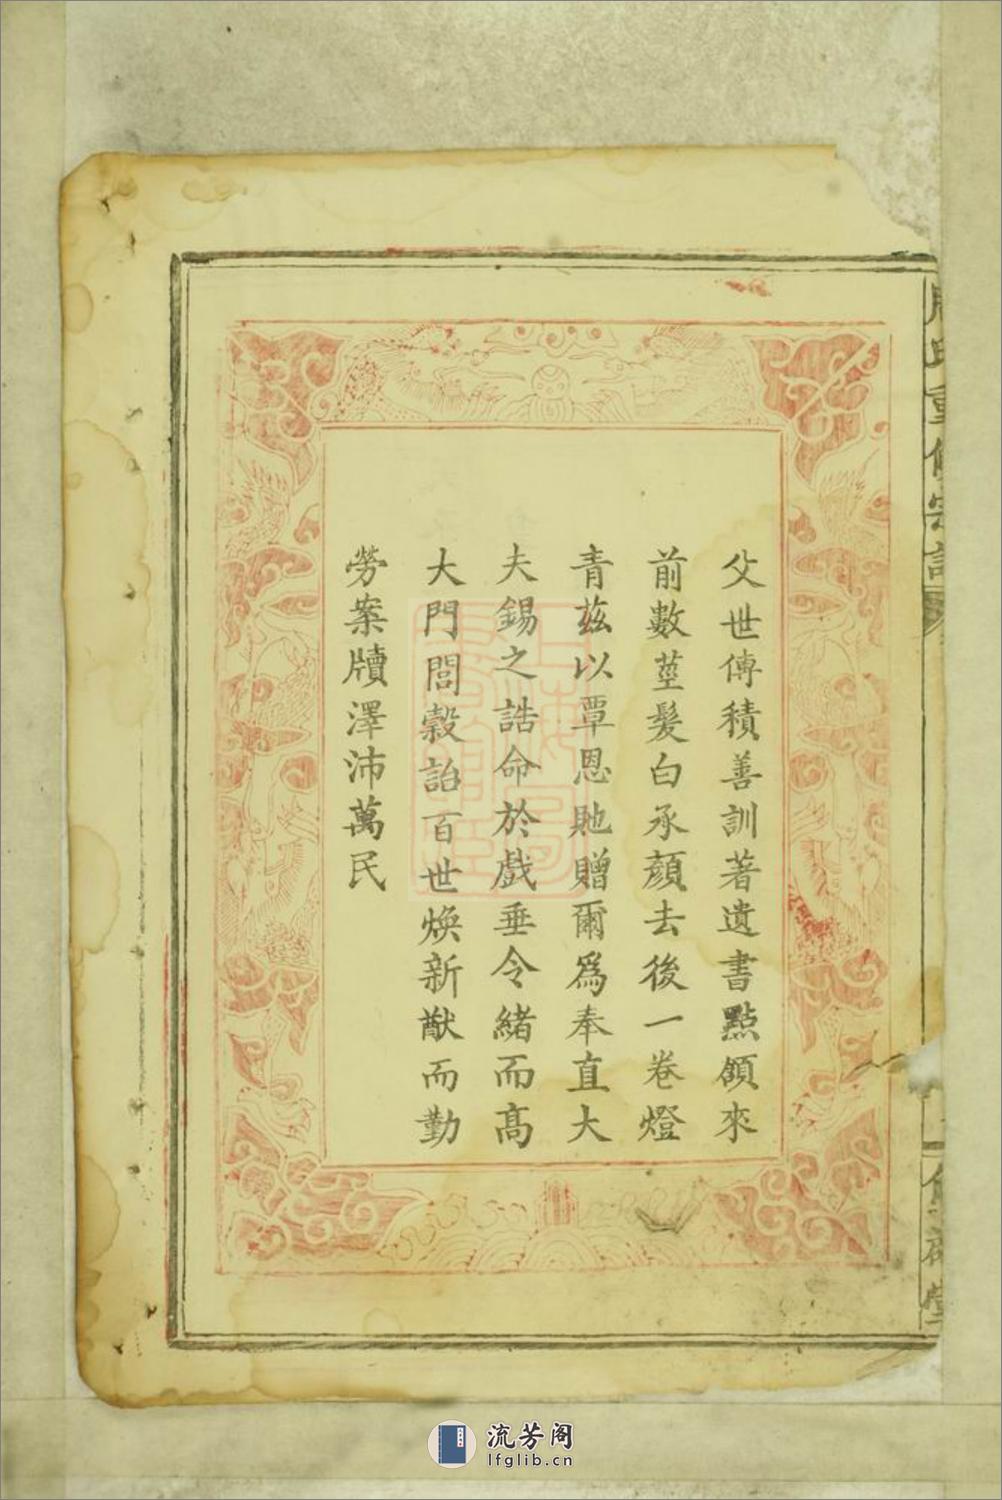 父世傳積善訓著遺書點頷來
前數莖髮白承顏去後一卷燈
青茲以覃恩貤贈爾爲奉直大
夫錫之誥命於戲垂令緒而高
大門閭穀詒百世焕新猷而勤
勞案牘澤沛萬民
氏重修宗譜
流芳阁
lfglib.cn